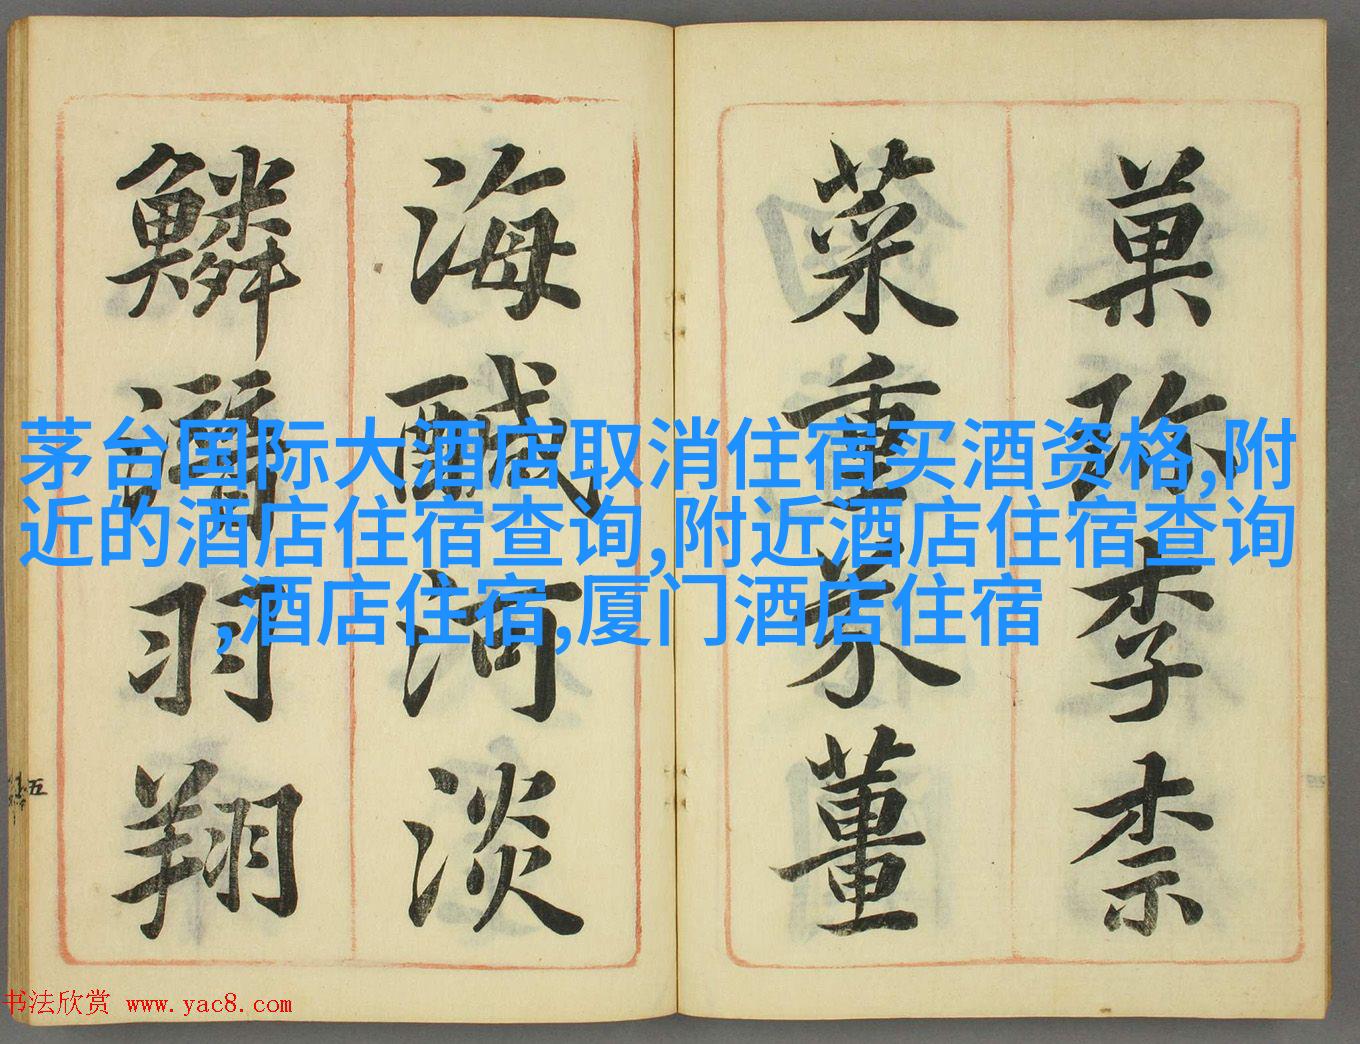 菓珎李柰
菜重芥薑
海醎河淡
鱗潛羽翔
五
茅台国际大酒店取消住宿买酒资格,附
近的酒店住宿查询,附近酒店住宿查询
,酒店住宿,厦门酒店住宿
书法欣赏 www.yac8.com